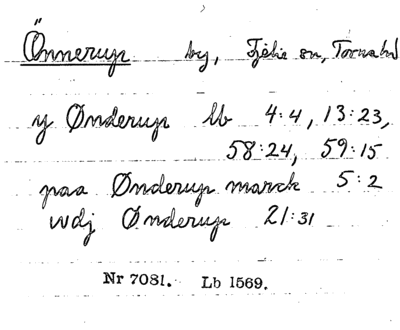 Önnerup by, Fjelie sn, Torna hd
y Ønderup lb 4:4, 13:23,
58:24, 59:15
paa Ønderup marck 5:2
wdj Ønderup 21:31
Nr 7081. Lb 1569.